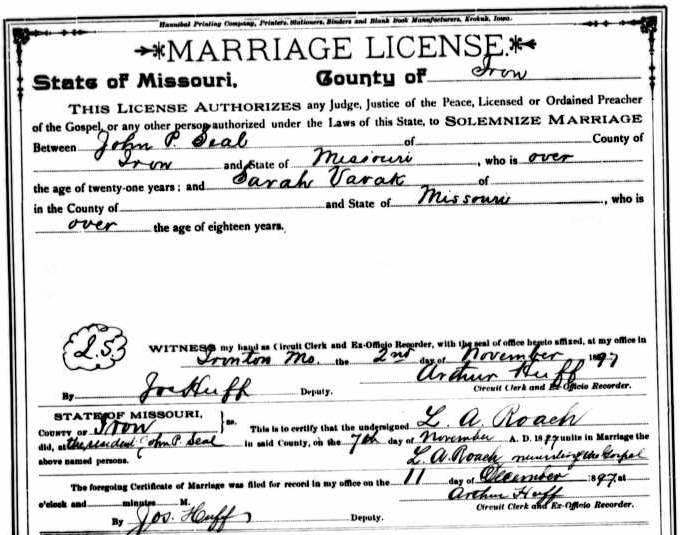 Hannibal Printing Company, Printers, Stationers, Binders and Blank Book Manufacturers, Keokuk, Iowa.
MARRIAGE LICENSE.
State of Missouri, County of Iron
THIS LICENSE AUTHORIZES any Judge, Justice of the Peace, Licensed or Ordained Preacher
of the Gospel, or any other person authorized under the Laws of this State, to SOLEMNIZE MARRIAGE
Between John P. Seal of County of
Iron and State of Missouri, who is over
the age of twenty-one years; and Sarah Varak of
in the County of and State of Missouri, who is
over the age of eighteen years.
L.S.
WITNESS my hand as Circuit Clerk and Ex-Officio Recorder, with the seal of office hereto affixed, at my office in
Ironton Mo. the 2nd day of November 1897
Arthur Huff
By Jos Huff Deputy. Circuit Clerk and Ex-Officio Recorder.
STATE OF MISSOURI,
COUNTY OF Iron ss. This is to certify that the undersigned L. A. Roach
did, at the resident John P. Seal in said County, on the 7th day of November A. D. 1897 unite in Marriage the
above named persons. L. A. Roach of the Gospel
The foregoing Certificate of Marriage was filed for record in my office on the 11 day of December 1897, at
o'clock and minutes M. Arthur Huff
Circuit Clerk and Ex-Officio Recorder.
By Jos. Huff Deputy.